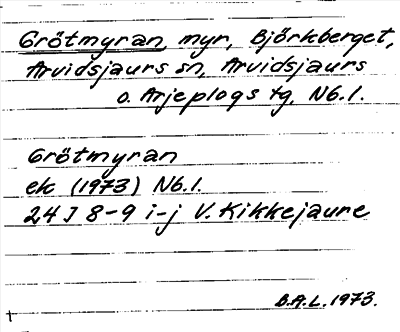 Grötmyran, myr, Björkberget,
Arvidsjaurs sn, Arvidsjaurs
o. Arjeplogs tg, Nb.l.
Grötmyran
ek (1973) Nb.l.
24 J 8-9 i-j V. Kikkejaure
B.A.L. 1973.